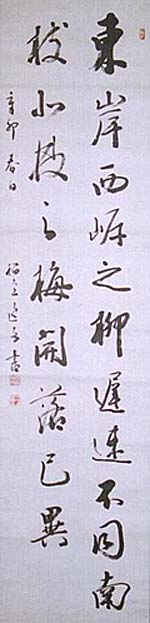 東岸西岸之柳遲速不同南
枝北枝之梅開落已異
辛卯春日